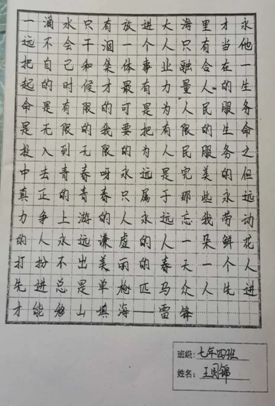 一滴水只有放进大海里才永
远不会干涸一个人只有当他
把自己和集体事业融合在一
起的时候才最有力量人的生
命是有限的可是为人民服务
是无限的我要把有限的生命
投入到无限的为人民服务之
中去青春呀永远是完美的但
真正的青春只属于那些永远
力争上游的人永远忘我劳动
的人永远谦虚的人一朵鲜花
打扮不出美丽的春天一个人
先进总是单枪匹马众人先进
才能移山填海——雷锋
班级:七年四班
姓名:王